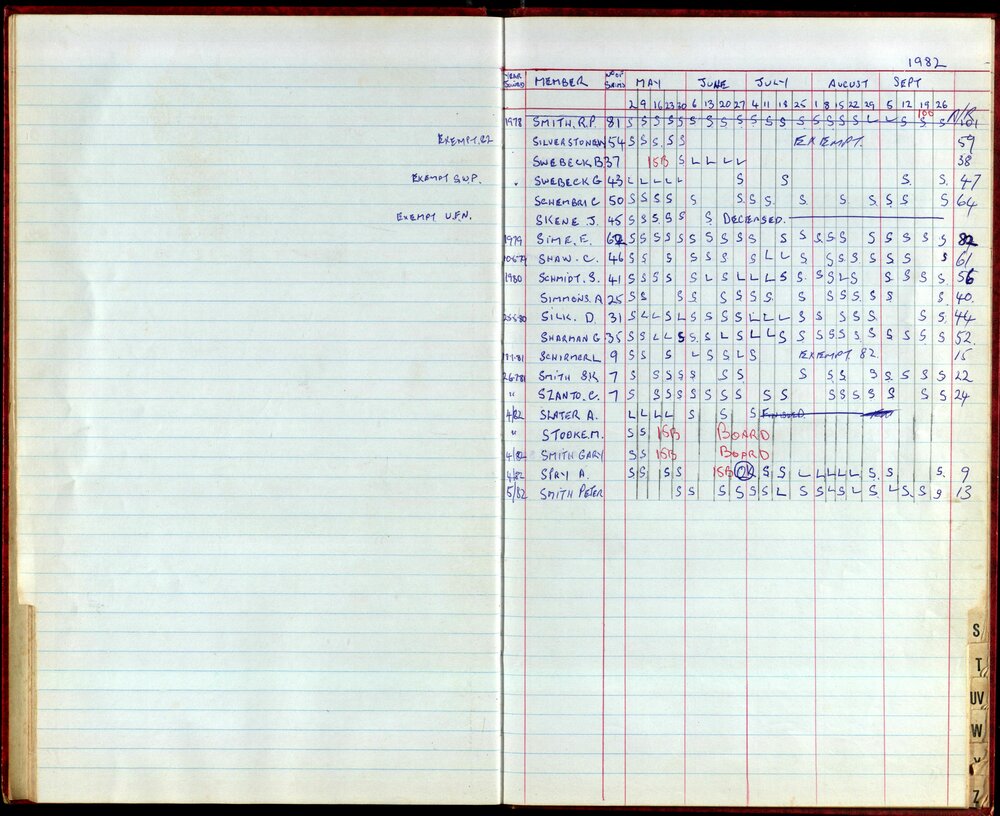 1982
YEAR JOINED MEMBER No OF SWIMS MAY JUNE JULY AUGUST SEPT
2 9 16 23 30 6 13 20 27 4 11 18 25 1 8 15 22 29 5 12 19 26
100
1978 SMITH. R.P. 81 S S S S S S S S S S S S S S S S S L L S S S N/R 101
EXEMPT. 82 SILVERSTONE W 54 S S S S S EXEMPT. 59
SWEBECK B 37 15B S L L L L 38
EXEMPT S.W.P. " SWEBECK G 43 L L L L L S S S. S. 47
SCHEMBRI C 50 S S S S S S S S S S S S S S 64
EXEMPT U.F.N. SKENE J. 45 S S S S S S DECEASED.
1979 SIME. E. 62 S S S S S S S S S S S S S S S S S S S S S 82
SHAW. C. 46 S S S S S S S L L S S S S S S S S S 61
1980 SCHMIDT. S. 41 S S S S S L S L L L S S S S L S S S S S. 56
SIMMONS. A 25 S S S S S S S S S S S S S S S. 40.
25.5.80 SILK. D. 31 S L L S L S S S S L L L S S S S S S S. 44
SHARMAN G. 35 S S L L S S S L S L L S S S S S S S S S S S 52.
SCHIRMER L 9 S S S L S S L S EXEMPT 82. 15
26.7.81 SMITH S.K. 7 S S S S S S S S S S S S S S S S 22
" SZANTO. C. 7 S S S S S S S S S S S S S S S S S S S 24
4/82 SLATER A. L L L L S S S FINISHED
" STOOKE. M. S S 15B BOARD
4/82 SMITH GARY S S 15B BOARD
4/82 SPRY A. S S S S 15B OK S S L L L L L S S S. 9
5/82 SMITH PETER S S S S S S L S S L S L S L S S S 13
S
T
UV
W
Z